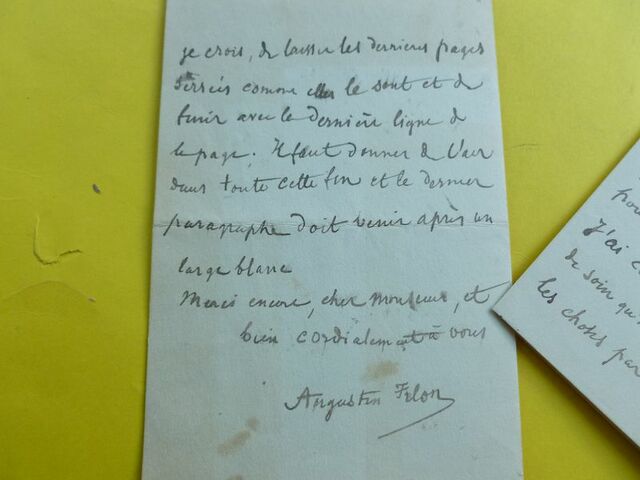 je crois, de laisser les dernières pages
serrées comme elles le sont et de
finir avec la dernière ligne de
la page. Il faut donner de l'air
dans toute cette fin et le dernier
paragraphe doit venir après un
large blanc
Merci encore, cher Monsieur, et
bien cordialement à vous
Augustin Filon
pou
J'ai c
de soin qu
les choses par